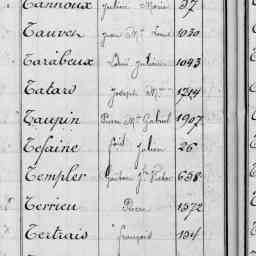 Tannoux Julien Marie 37
Tauven Jean Mie Louis 1030
Tarabeux Aimé Julien 1043
Tatard Joseph Mie 1714
Taupin Pierre Mie Gabriel 1907
Tefaine Julien 26
Templer 638
Terrieu Pierre 1572
Tertrais françois 134